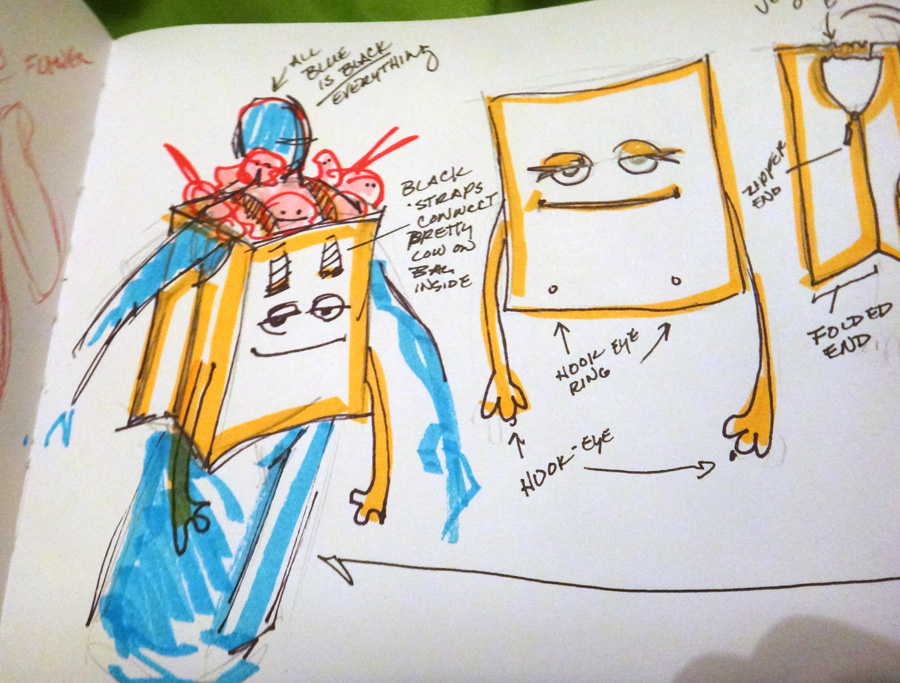 FLOWER
ALL
BLUE
IS BLACK
EVERYTHING
BLACK
STRAPS
CONNECT
PRETTY
LOW ON
BAG
INSIDE
HOOK EYE
RING
HOOK-EYE
ZIPPER
END
FOLDED
END